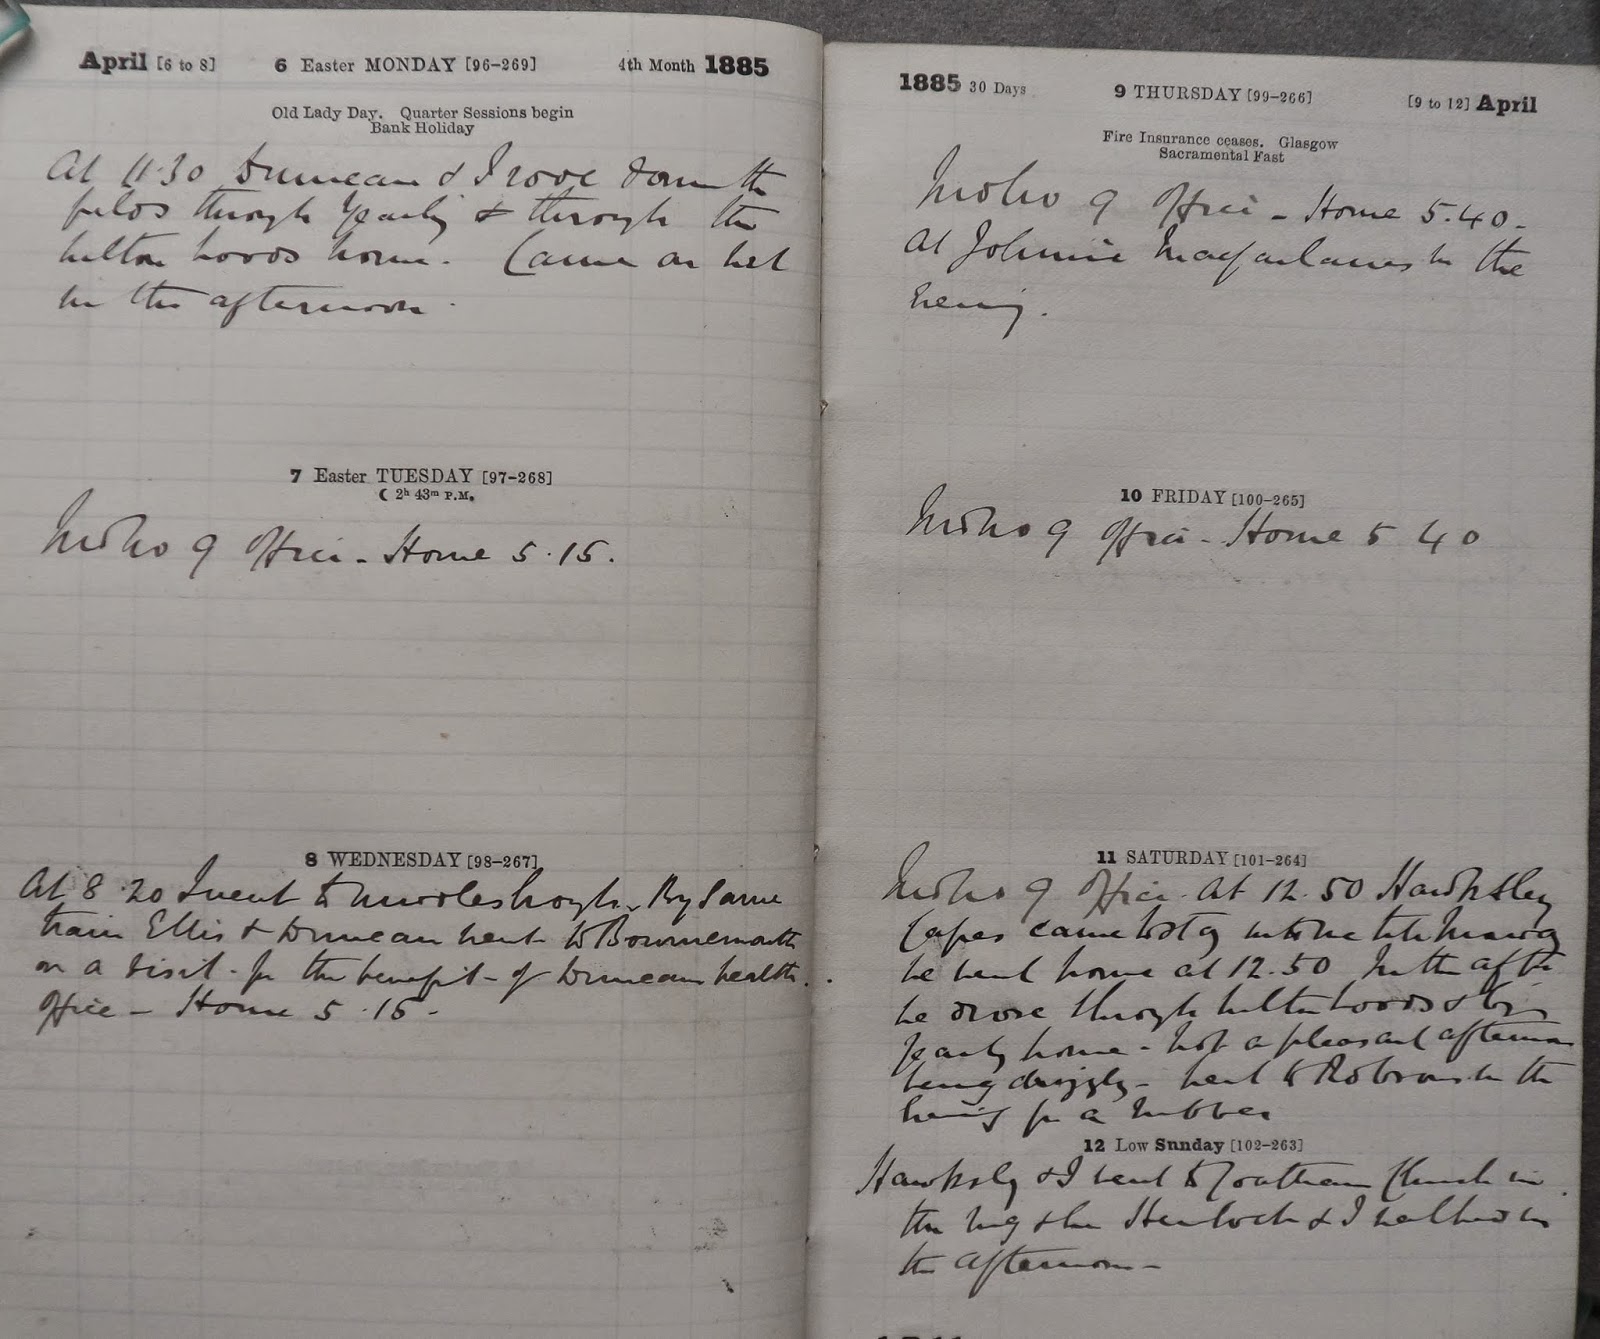 April [6 to 8] 6 Easter MONDAY [96-269] 4th Month 1885
Old Lady Day. Quarter Sessions begin
Bank Holiday
At 11.30 Duncan & I rode down the
fields through Yearby & through the
Wilton Woods home. Came on wet
in the afternoon.
7 Easter TUESDAY [97-268]
☾ 2h 43m P.M.
9 Office - Home 5.15.
8 WEDNESDAY [98-267]
At 8.20 I went to Middlesbrough. By same
train Ellis & Duncan went to Bournemouth
on a visit - for the benefit of Duncan health.
Office - Home 5.15.
1885 30 Days 9 THURSDAY [99-266] [9 to 12] April
Fire Insurance ceases. Glasgow
Sacramental Fast
9 Office - Home 5.40.
At Johnnie Macfarlanes in the
evening.
10 FRIDAY [100-265]
9 Office - Home 5 40
11 SATURDAY [101-264]
9 Office. At 12.50 Hawksley
Capes came to stay with me till Monday
we went home at 12.50 In the aft
we drove through Wilton Woods & by
Yearby home - not a pleasant afternoon
being drizzly - went to Robsons in the
evening for a rubber
12 Low Sunday [102-263]
Hawksly & I went to Coatham Church in
the & I walked in
the afternoon -